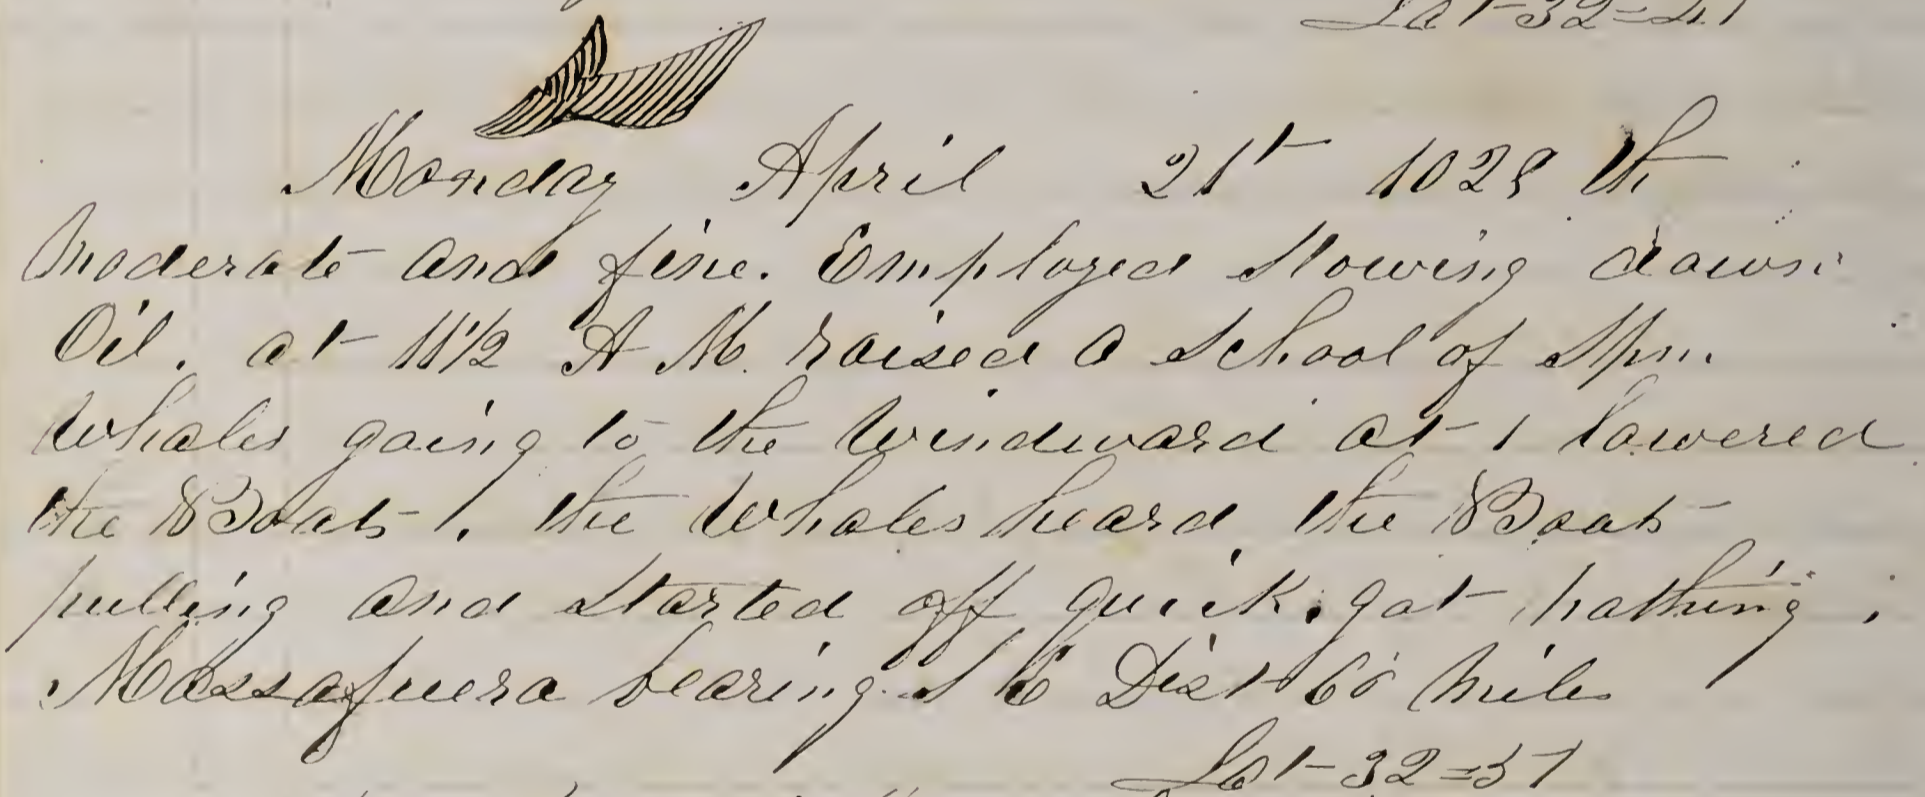 Lat 32=41
Monday April 21st 1028 th
Moderate and fine. Employed Stowing down
Oil. at 11 1/2 A M. raised a School of Spm.
Whales going to the Windward at 1 lowered
the Boats. the Whales heard the Boats
pulling and started off quick. got nothing.
Massafuera bearing S E Dist 60 Miles
Lat 32=57